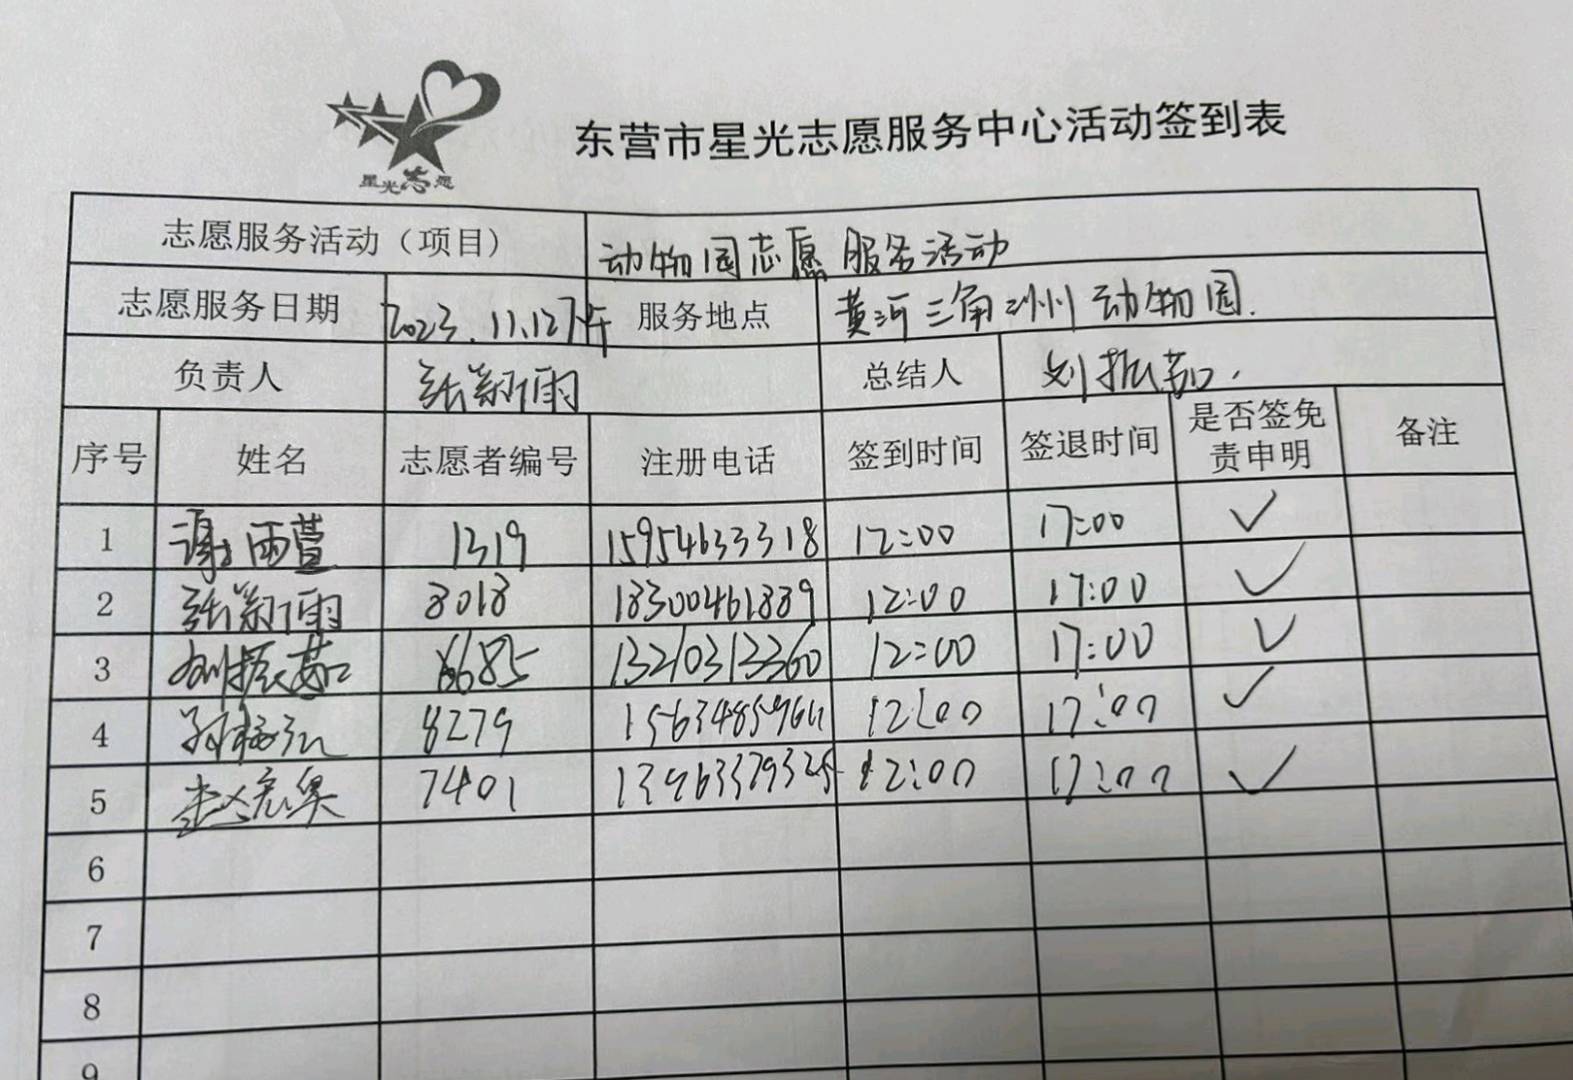 星光志愿
东营市星光志愿服务中心活动签到表
志愿服务活动（项目） 动物园志愿服务活动
志愿服务日期 2023.11.12下午 服务地点 黄河三角洲动物园.
负责人 张新雨 总结人 刘振茹.
序号 姓名 志愿者编号 注册电话 签到时间 签退时间 是否签免责申明 备注
1 谢雨萱 1319 15954633318 12:00 17:00 ✓
2 张新雨 8018 18300461889 12:00 17:00 ✓
3 刘振茹 6685 13210313360 12:00 17:00 ✓
4 8279 12:00 17:00 ✓
5 7401 12:00 17:00 ✓
6
7
8
9